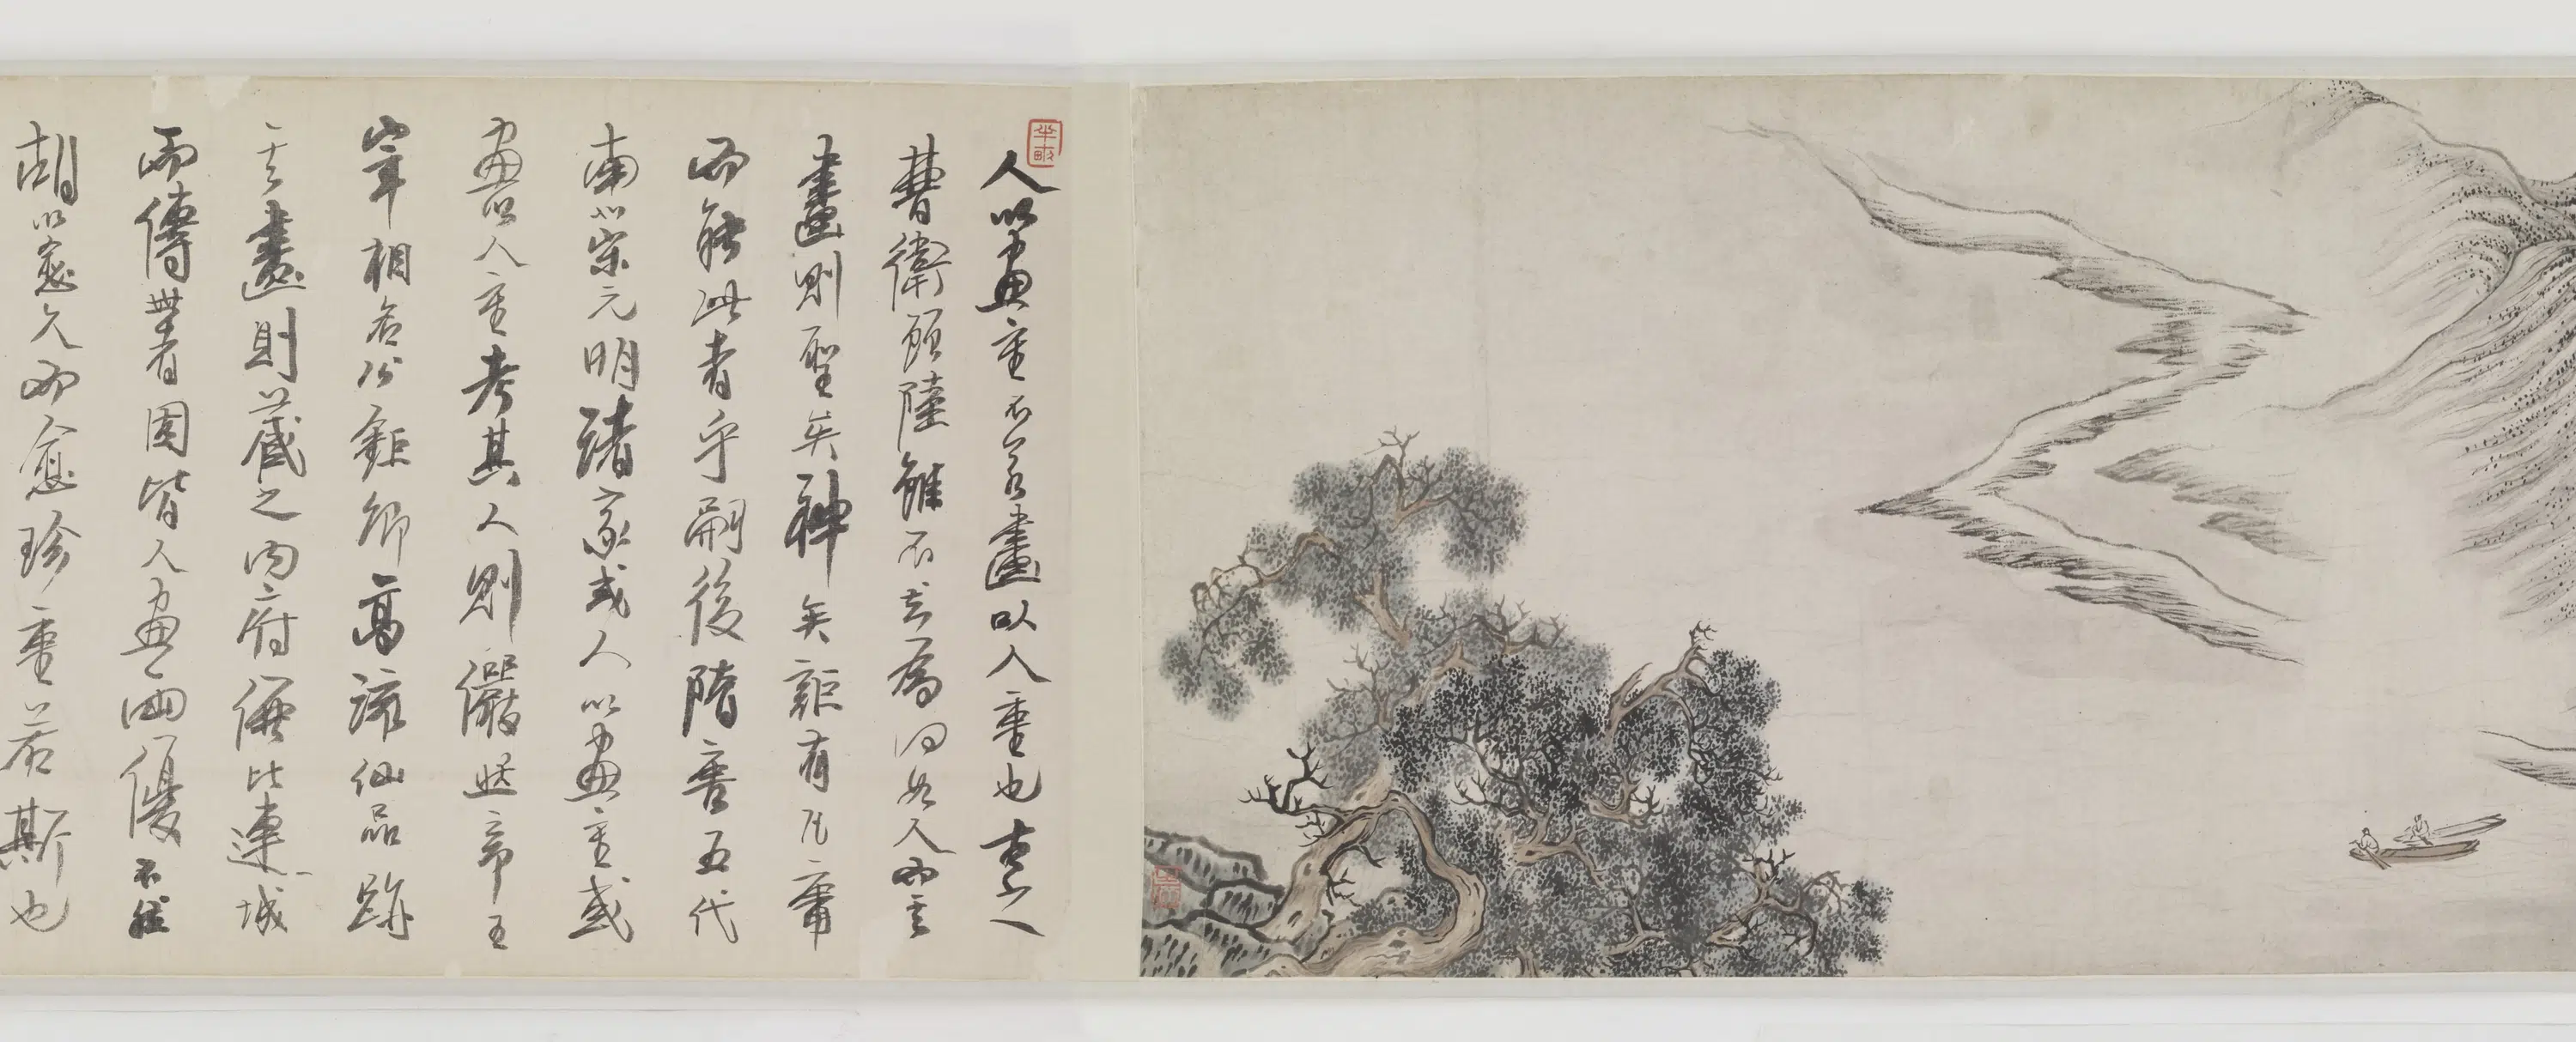 半畝
人以畫重不若畫以人重也古之人
曹衛顧陸雖不知為何如人而其
畫則聖矣神矣詎有凡庸
而能此者乎嗣後隋唐五代
南北宋元明諸家或人以畫重或
畫以人重考其人則儼然帝王
宰相名公鉅卿高流仙品跡
其畫則藏之內府價比連城
而傳世者固皆人畫兩優不然
胡以愈久而愈珍重若斯也